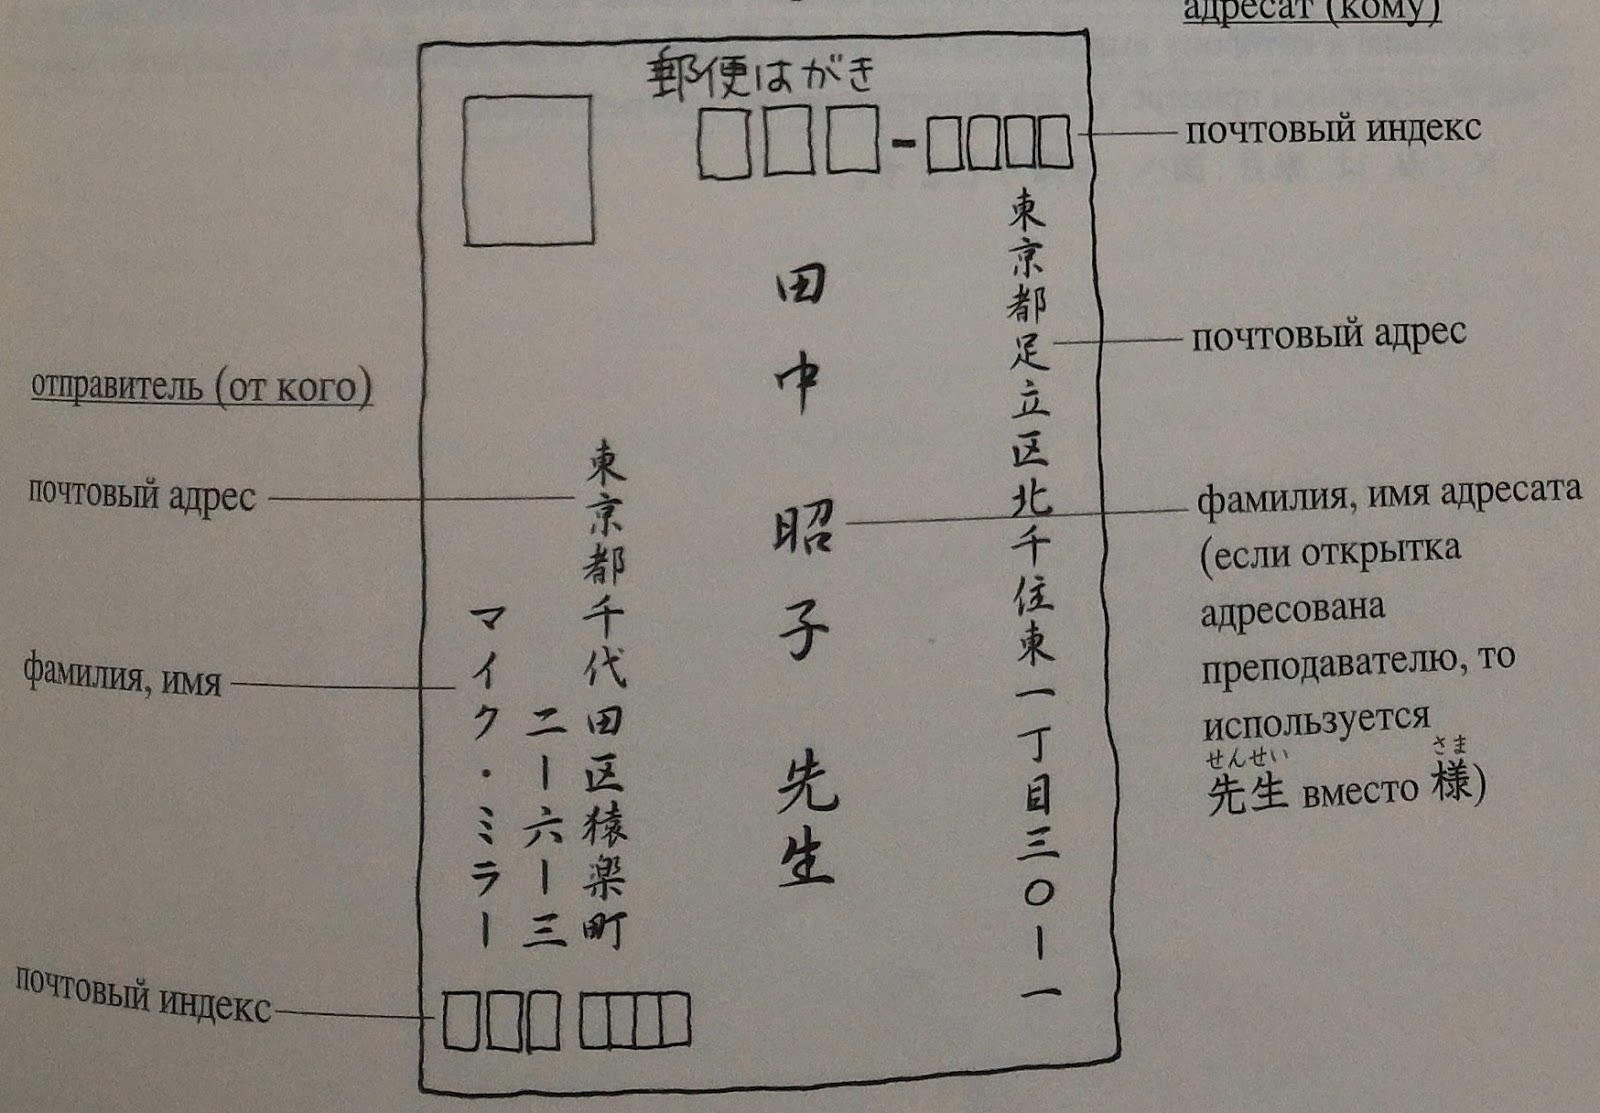 адресат (кому)
郵便はがき
почтовый индекс
東京都足立区北千住東一丁目三〇ー一
почтовый адрес
田中昭子先生
фамилия, имя адресата
(если открытка
адресована
преподавателю, то
используется
せんせい さま
先生 вместо 様)
отправитель (от кого)
東京都千代田区猿楽町
二ー六ー三
почтовый адрес
マイク・ミラー
фамилия, имя
почтовый индекс